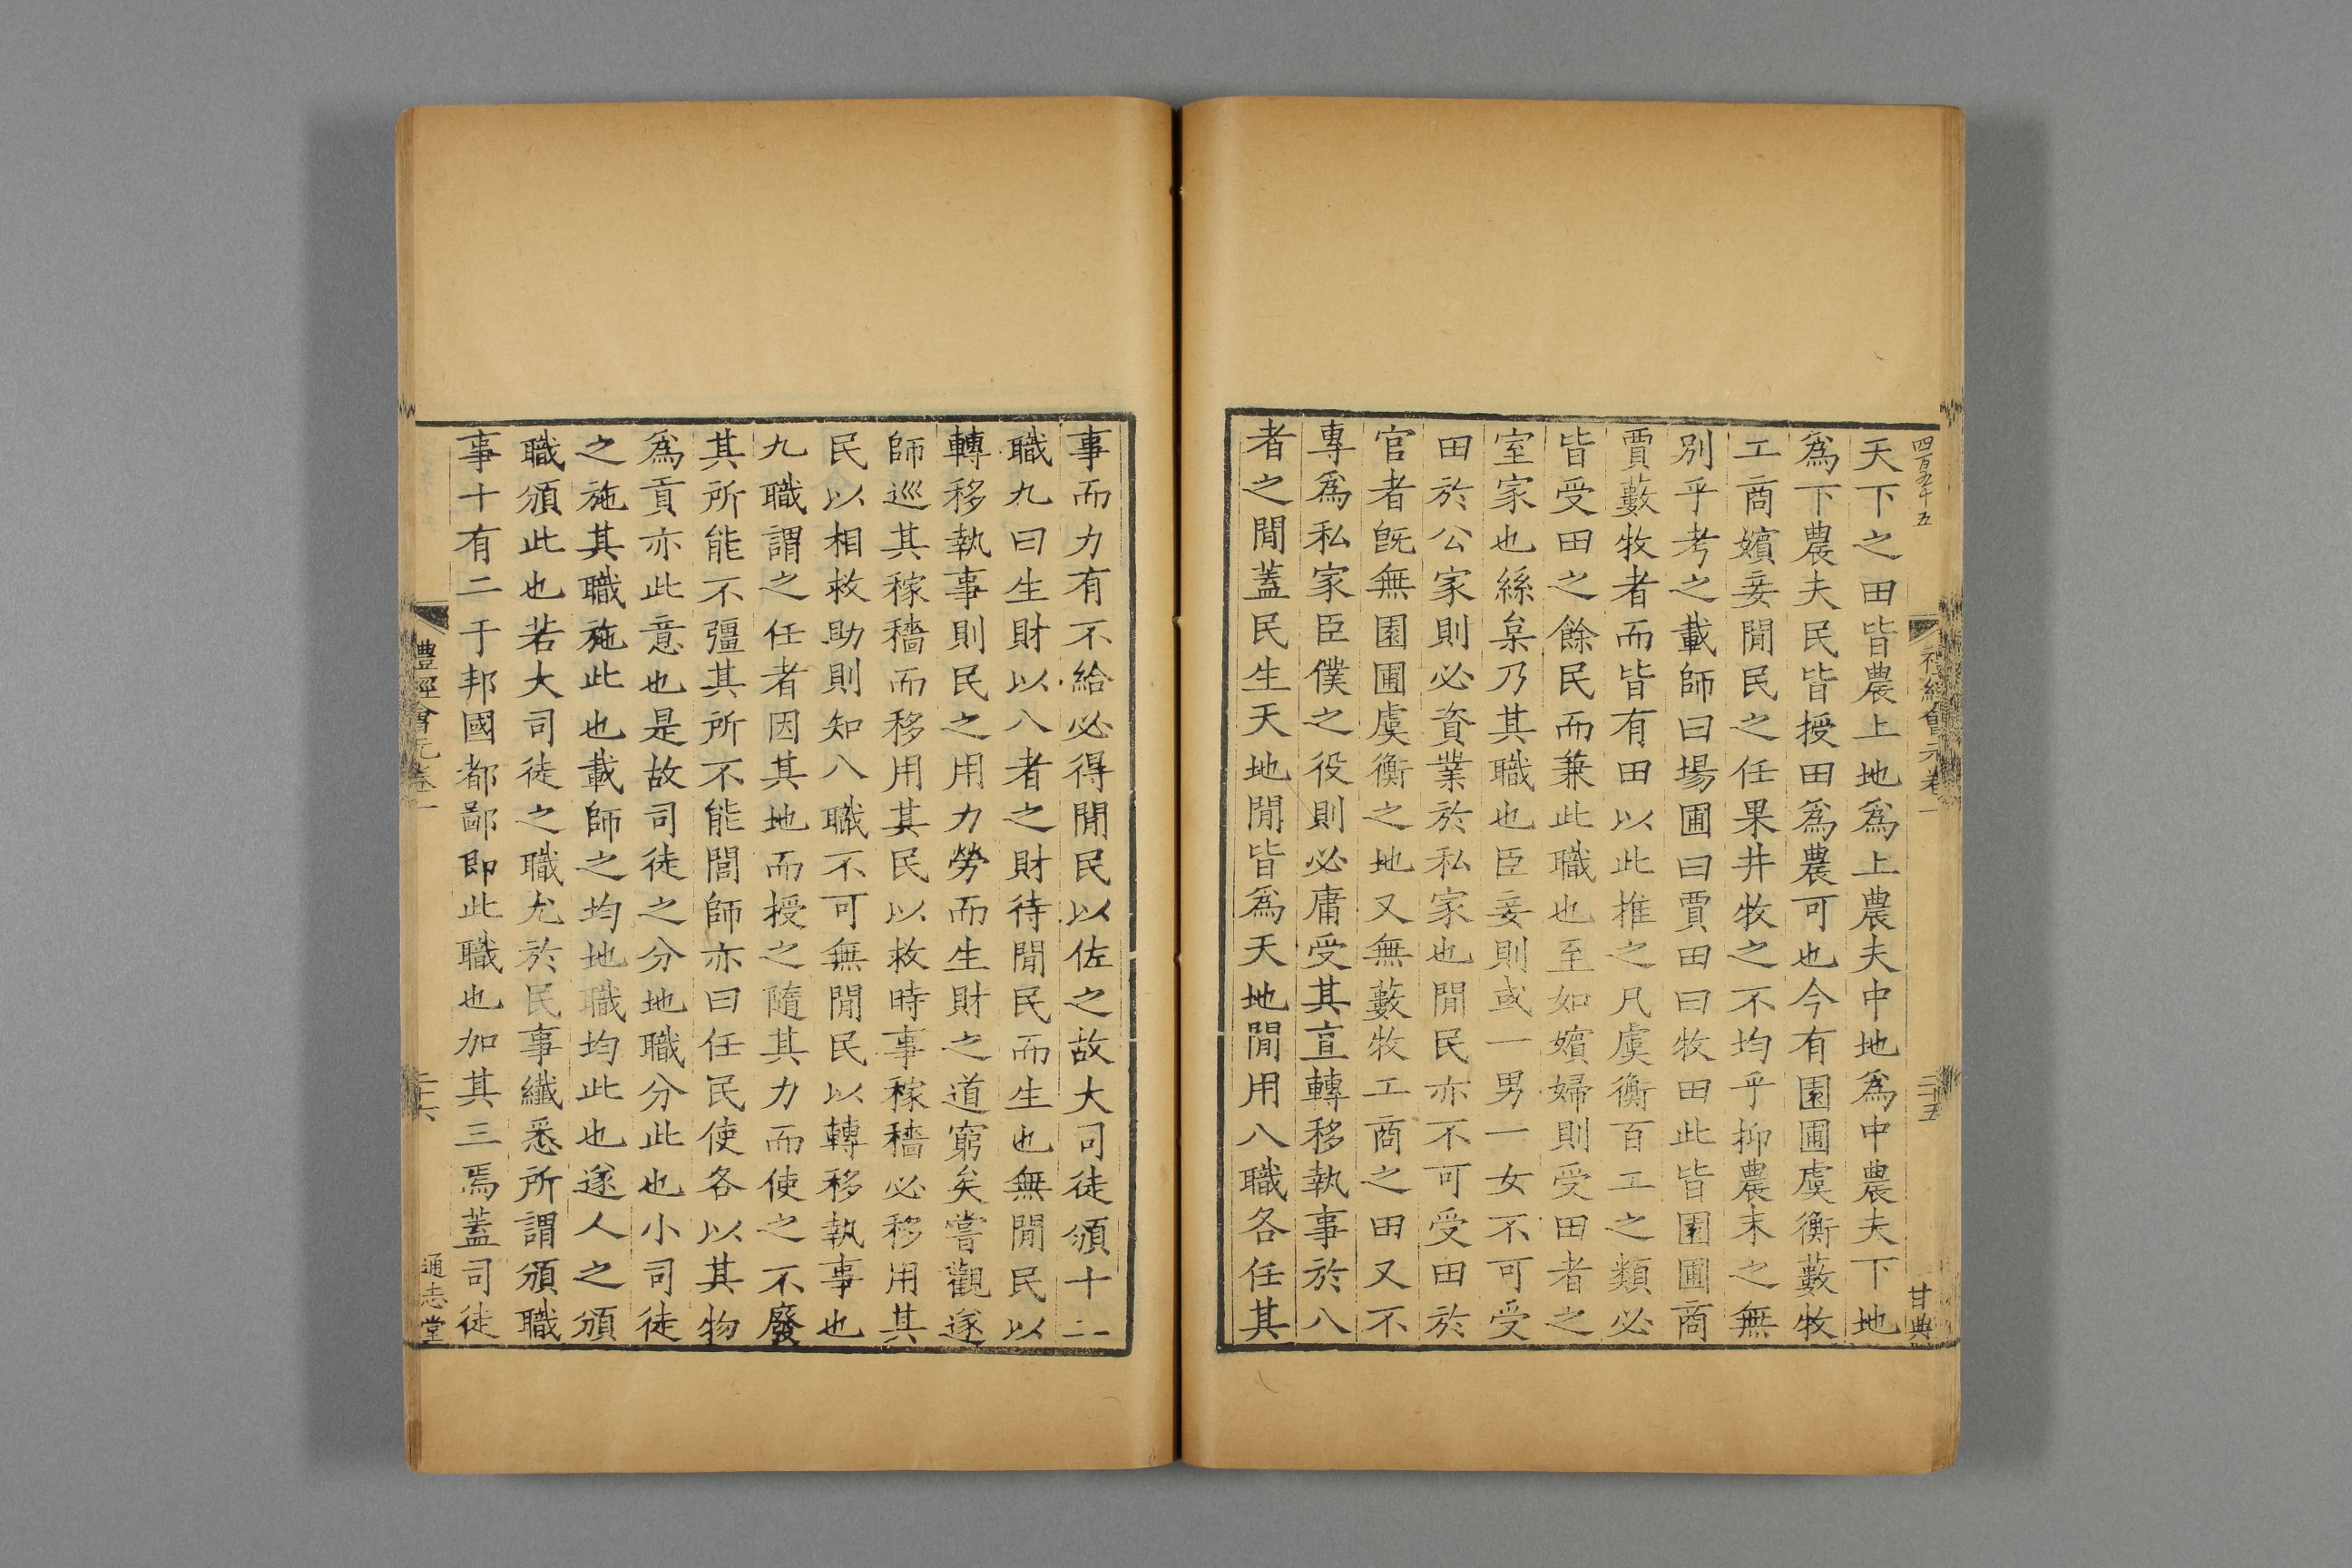 四百五十五
禮經會元卷一
二十五
甘典
天下之田皆農上地爲上農夫中地爲中農夫下地
爲下農夫民皆授田爲農可也今有園圃虞衡藪牧
工商嬪妾閒民之任果井牧之不均乎抑農末之無
別乎考之載師曰場圃曰賈田曰牧田此皆園圃商
賈藪牧者而皆有田以此推之凡虞衡百工之類必
皆受田之餘民而兼此職也至如嬪婦則受田者之
室家也絲枲乃其職也臣妾則或一男一女不可受
田於公家則必資業於私家也閒民亦不可受田於
官者旣無園圃虞衡之地又無藪牧工商之田又不
專爲私家臣僕之役則必庸受其直轉移執事於八
者之閒蓋民生天地閒皆爲天地閒用八職各任其
事而力有不給必得閒民以佐之故大司徒頒十二
職九曰生財以八者之財待閒民而生也無閒民以
轉移執事則民之用力勞而生財之道窮矣嘗觀遂
師巡其稼穡而移用其民以救時事稼穡必移用其
民以相救助則知八職不可無閒民以轉移執事也
九職謂之任者因其地而授之隨其力而使之不廢
其所能不彊其所不能閭師亦曰任民使各以其物
爲貢亦此意也是故司徒之分地職分此也小司徒
之施其職施此也載師之均地職均此也遂人之頒
職頒此也若大司徒之職尤於民事纖悉所謂頒職
事十有二于邦國都鄙即此職也加其三焉蓋司徒
禮經會元卷一
二十六
通志堂